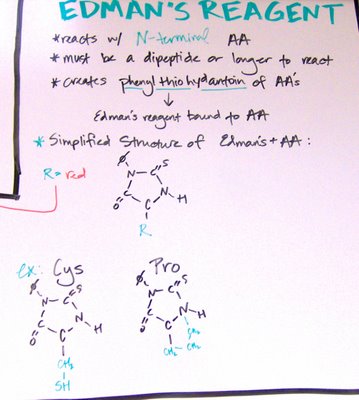 EDMAN'S REAGENT
* reacts w/ N-terminal AA
* must be a dipeptide or longer to react
* creates phenyl thio hydantoin of AA's
↓
Edman's reagent bound to AA
* Simplified Structure of Edman's + AA:
R = red
Ø S
N - C
C N - H
O C
R
ex: Cys Pro
Ø S Ø S
N - C N - C
C N - H C N - H
O C O C
CH₂ CH₂ - CH₂ CH₂
SH